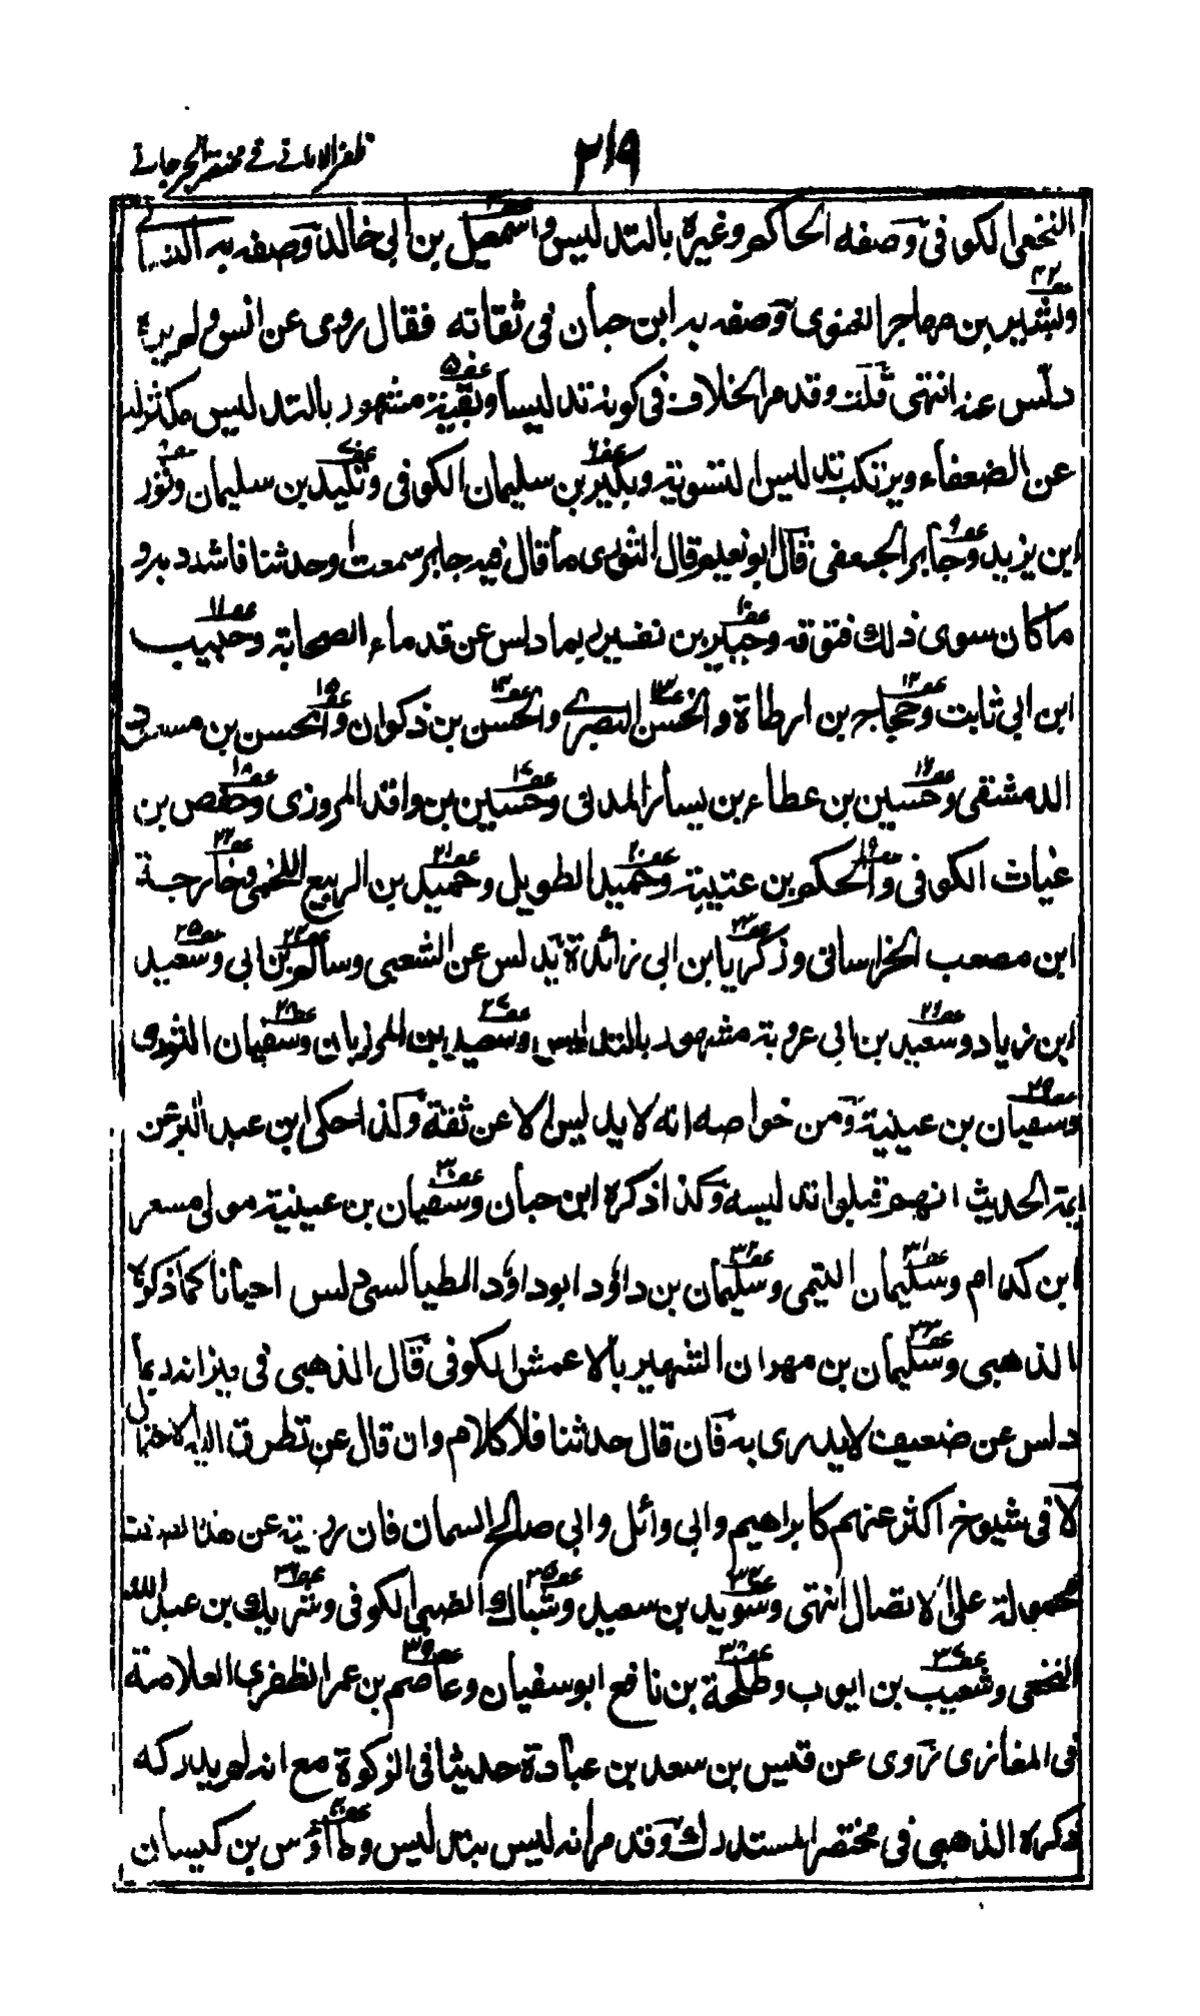 ظفر الاماني في مختصر الجرجاني
٢١٩
النخعي الكوفي وصفه الحاكم وغيره بالتدليس واسمعيل بن ابي خالد وصفه به النسائي
وبشير بن مهاجر الغنوي وصفه به ابن حبان في ثقاته فقال روى عن انس ولم يره
دلس عنه انتهى قلت وقد مر الخلاف في كونه تدليسا وبقية مشهور بالتدليس مكثر له
عن الضعفاء ويرتكب تدليس التسوية وبكير بن سليمان الكوفي وتليد بن سليمان وثور
ابن يزيد وجابر الجعفي قال ابو نعيم قال الثوري ما قال فيه جابر سمعت او حدثنا فاشدد به و
ما كان سوى ذلك فتوقه وجبير بن نفير ربما دلس عن قدماء الصحابة وحبيب
ابن ابي ثابت وحجاج بن ارطاة والحسن البصري والحسن بن ذكوان والحسن بن مسعود
الدمشقي وحسين بن عطاء بن يسار المدني وحسين بن واقد المروزي وحفص بن
غياث الكوفي والحكم بن عتيبة وحميد الطويل وحميد بن الربيع اللخمي وخارجة
ابن مصعب الخراساني وذكريا بن ابي زائدة يدلس عن الشعبي وسالم بن ابي وسعيد
ابن زياد وسعيد بن ابي عروبة مشهور بالتدليس وسعيد بن المرزبان وسفيان الثوري
وسفيان بن عيينة ومن خواصه انه لا يدليس الا عن ثقة وكذا حكى ابن عبد البر عن
ايمة الحديث انهم قبلوا تدليسه وكذا ذكره ابن حبان وسفيان بن عيينة مولى مسعر
ابن كدام وسليمان التيمي وسليمان بن داؤد ابو داؤد الطيالسي دلس احيانا كما ذكره
الذهبي وسليمان بن مهران الشهير بالاعمش الكوفي قال الذهبي في ميزانه ربما
دلس عن ضعيف لا يدرى به فان قال حدثنا فلا كلام وان قال عن تطرق اليه الاحتمال
الا في شيوخ اكثر عنهم كابراهيم وابي وائل وابي صالح السمان فان روايته عن هذا الصنف
محمولة على الاتصال انتهى وسويد بن سعيد وشباك الضبي الكوفي وشريك بن عبد الله
النخعي وشعيب بن ايوب وطلحة بن نافع ابو سفيان وعاصم بن عمر الظفري العلامة
في المغازي روى عن قيس بن سعد بن عبادة حديثا في الزكوة مع انه لم يدركه
ذكره الذهبي في مختصر المستدرك وقد مر انه ليس بتدليس وطاؤس بن كيسان